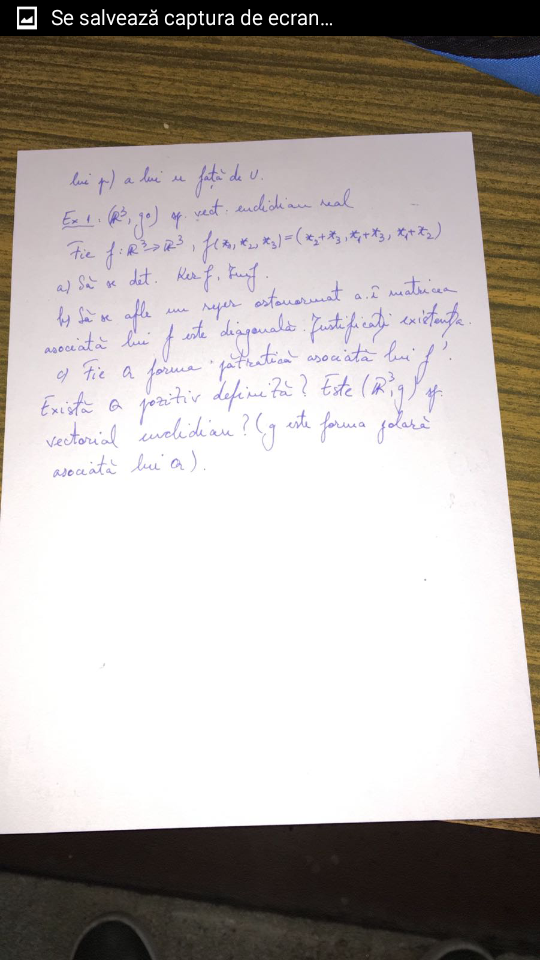 Se salvează captura de ecran...
lui p) a lui u față de U.
Ex 1. (ℝ³, g₀) sp. vect. euclidian real
Fie f: ℝ³→ℝ³, f(x₁, x₂, x₃)=(x₂+x₃, x₁+x₃, x₁+x₂)
a) Să se det. Ker f, Im f.
b) Să se afle un reper ortonormat a.î matricea
asociată lui f este diagonală. Justificați existența.
c) Fie Q forma pătratică asociată lui f.
Există Q pozitiv definită? Este (ℝ³, g) sp.
vectorial euclidian? (g este forma polară
asociată lui Q).